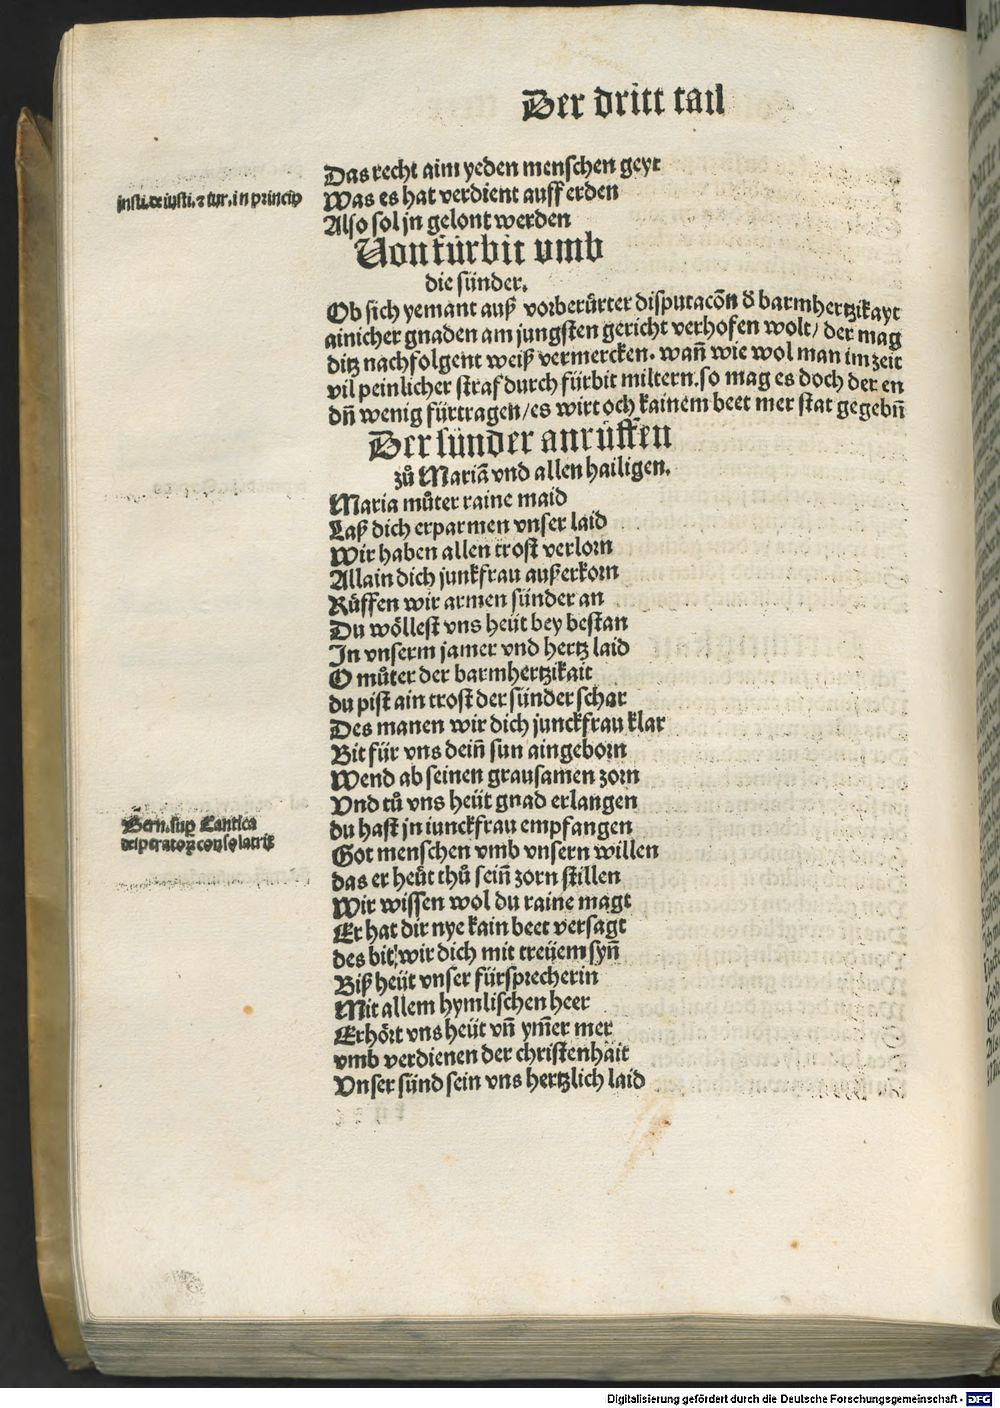 Der dritt tail
Das recht aim yeden menschen geyt
insti. de iusti. ⁊ iur. in princip
Was es hat verdient auff erden
Also sol jn gelont werden
Von fürbit vmb
die sünder.
Ob sich yemant auß vorberůrter disputacõn d̕ barmhertzikayt
ainicher gnaden am jungsten gericht verhofen wolt/ der mag
ditz nachfolgent weiß vermercken. wañ wie wol man im zeit
vil peinlicher straf durch fürbit miltern. so mag es doch der en
dñ wenig fürtragen/es wirt och kainem beet mer stat gegebñ
Der sünder anrüffen
zů Mariã vnd allen hailigen.
Maria můter raine maid
Laß dich erparmen vnser laid
Wir haben allen trost verlorn
Allain dich junkfrau außerkorn
Rüffen wir armen sünder an
Du wöllest vns heüt bey bestan
In vnserm jamer vnd hertz laid
O můter der barmhertzikait
du pist ain trost der sünder schar
Des manen wir dich junckfrau klar
Bit für vns deiñ sun aingeborn
Wend ab seinen grausamen zorn
Vnd tů vns heüt gnad erlangen
Bern. sup Cantica
du hast jn iunckfrau empfangen
desperatoꝝ consolatrix
Got menschen vmb vnsern willen
das er heüt thů seiñ zorn stillen
Wir wissen wol du raine magt
Er hat dir nye kain beet versagt
des bit wir dich mit treüem syñ
Biß heüt vnser fürsprecherin
Mit allem hymlischen heer
Erhört vns heüt vñ ym̃er mer
vmb verdienen der christenhait
Vnser sünd sein vns hertzlich laid
Digitalisierung gefördert durch die Deutsche Forschungsgemeinschaft - DFG